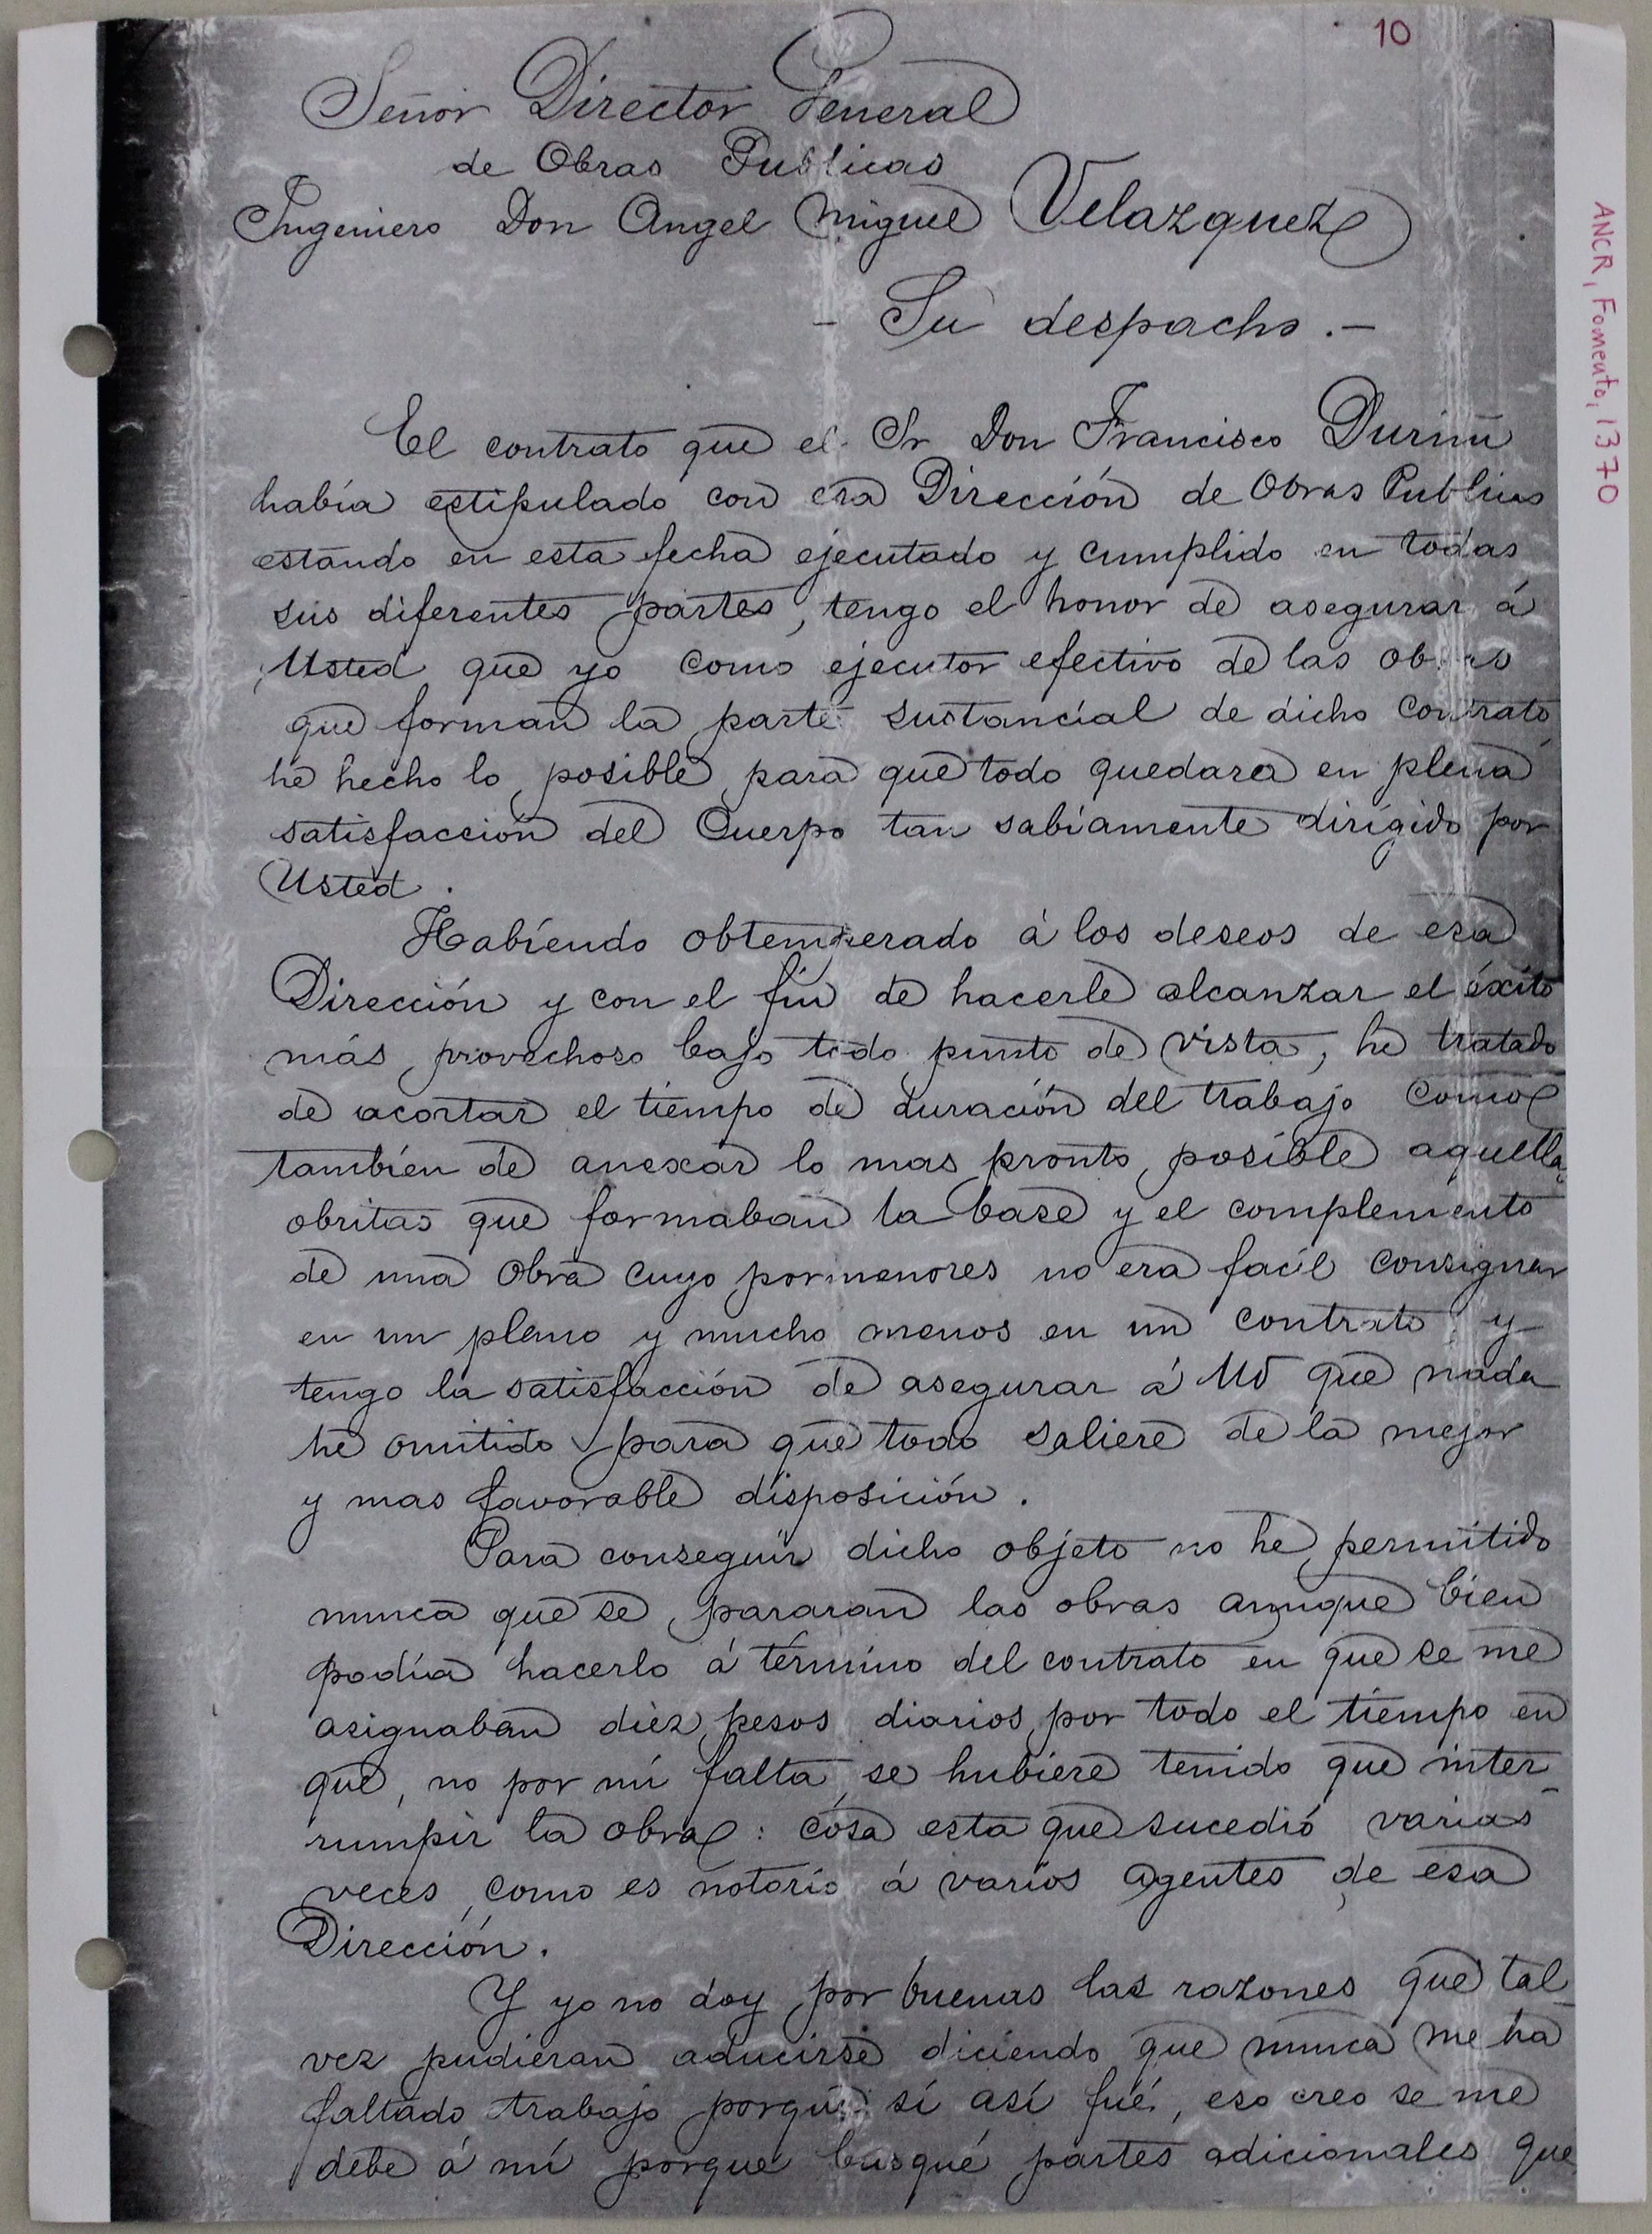 10
Señor Director General
de Obras Publicas
Ingeniero Don Angel Miguel Velazquez
- Su despacho.-
El contrato que el Sr Don Francisco Durini
había estipulado con esa Dirección de Obras Publicas
estando en esta fecha ejecutado y cumplido en todas
sus diferentes partes, tengo el honor de asegurar á
Usted que yo como ejecutor efectivo de las obras
que forman la parte sustancial de dicho contrato
he hecho lo posible para que todo quedara en plena
satisfaccion del Cuerpo tan sabiamente dirigido por
Usted.
Habiendo obtemperado á los deseos de esa
Dirección y con el fin de hacerle alcanzar el éxito
más provechoso bajo todo punto de vista, he tratado
de acortar el tiempo de duración del trabajo como
tambien de anexar lo mas pronto posible aquella
obritas que formaban la base y el complemento
de una obra cuyo pormenores no era facil consignar
en un plano y mucho menos en un contrato; y
tengo la satisfacción de asegurar á Ud que nada
he omitido para que todo saliere de la mejor
y mas favorable disposición.
Para conseguir dicho objeto no he permitido
nunca que se pararan las obras aunque bien
podía hacerlo á término del contrato en que se me
asignaban diez pesos diarios por todo el tiempo en
que, no por mi falta, se hubiere tenido que inter-
rumpir la obra: cosa esta que sucedió varias
veces, como es notorio á varios agentes de esa
Dirección.
Y yo no doy por buenas las razones que tal
vez pudieran aducirse diciendo que nunca me ha
faltado trabajo porque si así fué, eso creo se me
debe á mi porque busqué partes adicionales que
ANCR, Fomento, 1370